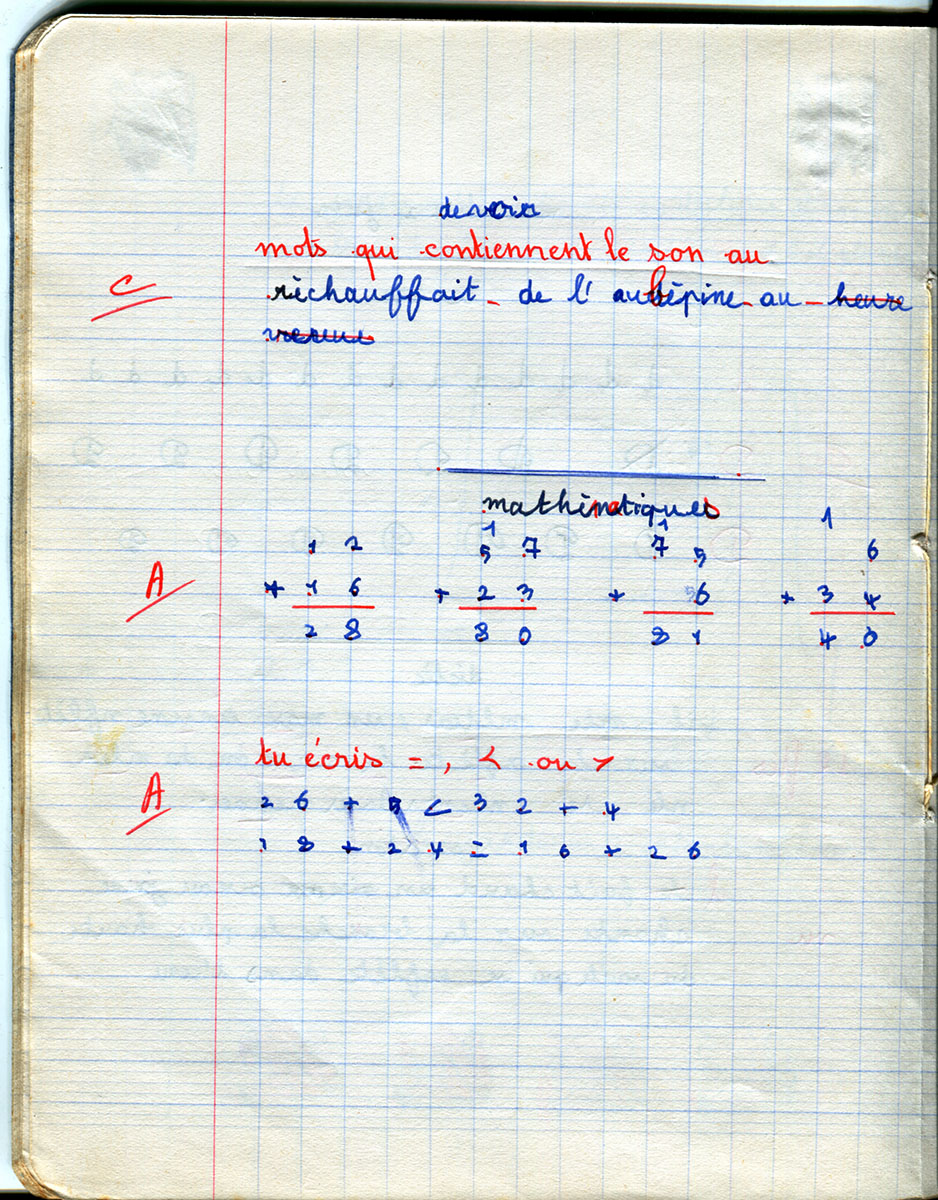 devoir
mots qui contiennent le son au
C
réchauffait - de l'aubépine - au - heure
mathématiques
1 1 1
1 2 5 7 7 5 6
A
+ 1 6 + 2 3 + 6 + 3 4
2 8 8 0 8 1 4 0
tu écris = , < ou >
A
2 6 + 5 < 3 2 + 4
1 8 + 2 4 = 1 6 + 2 6